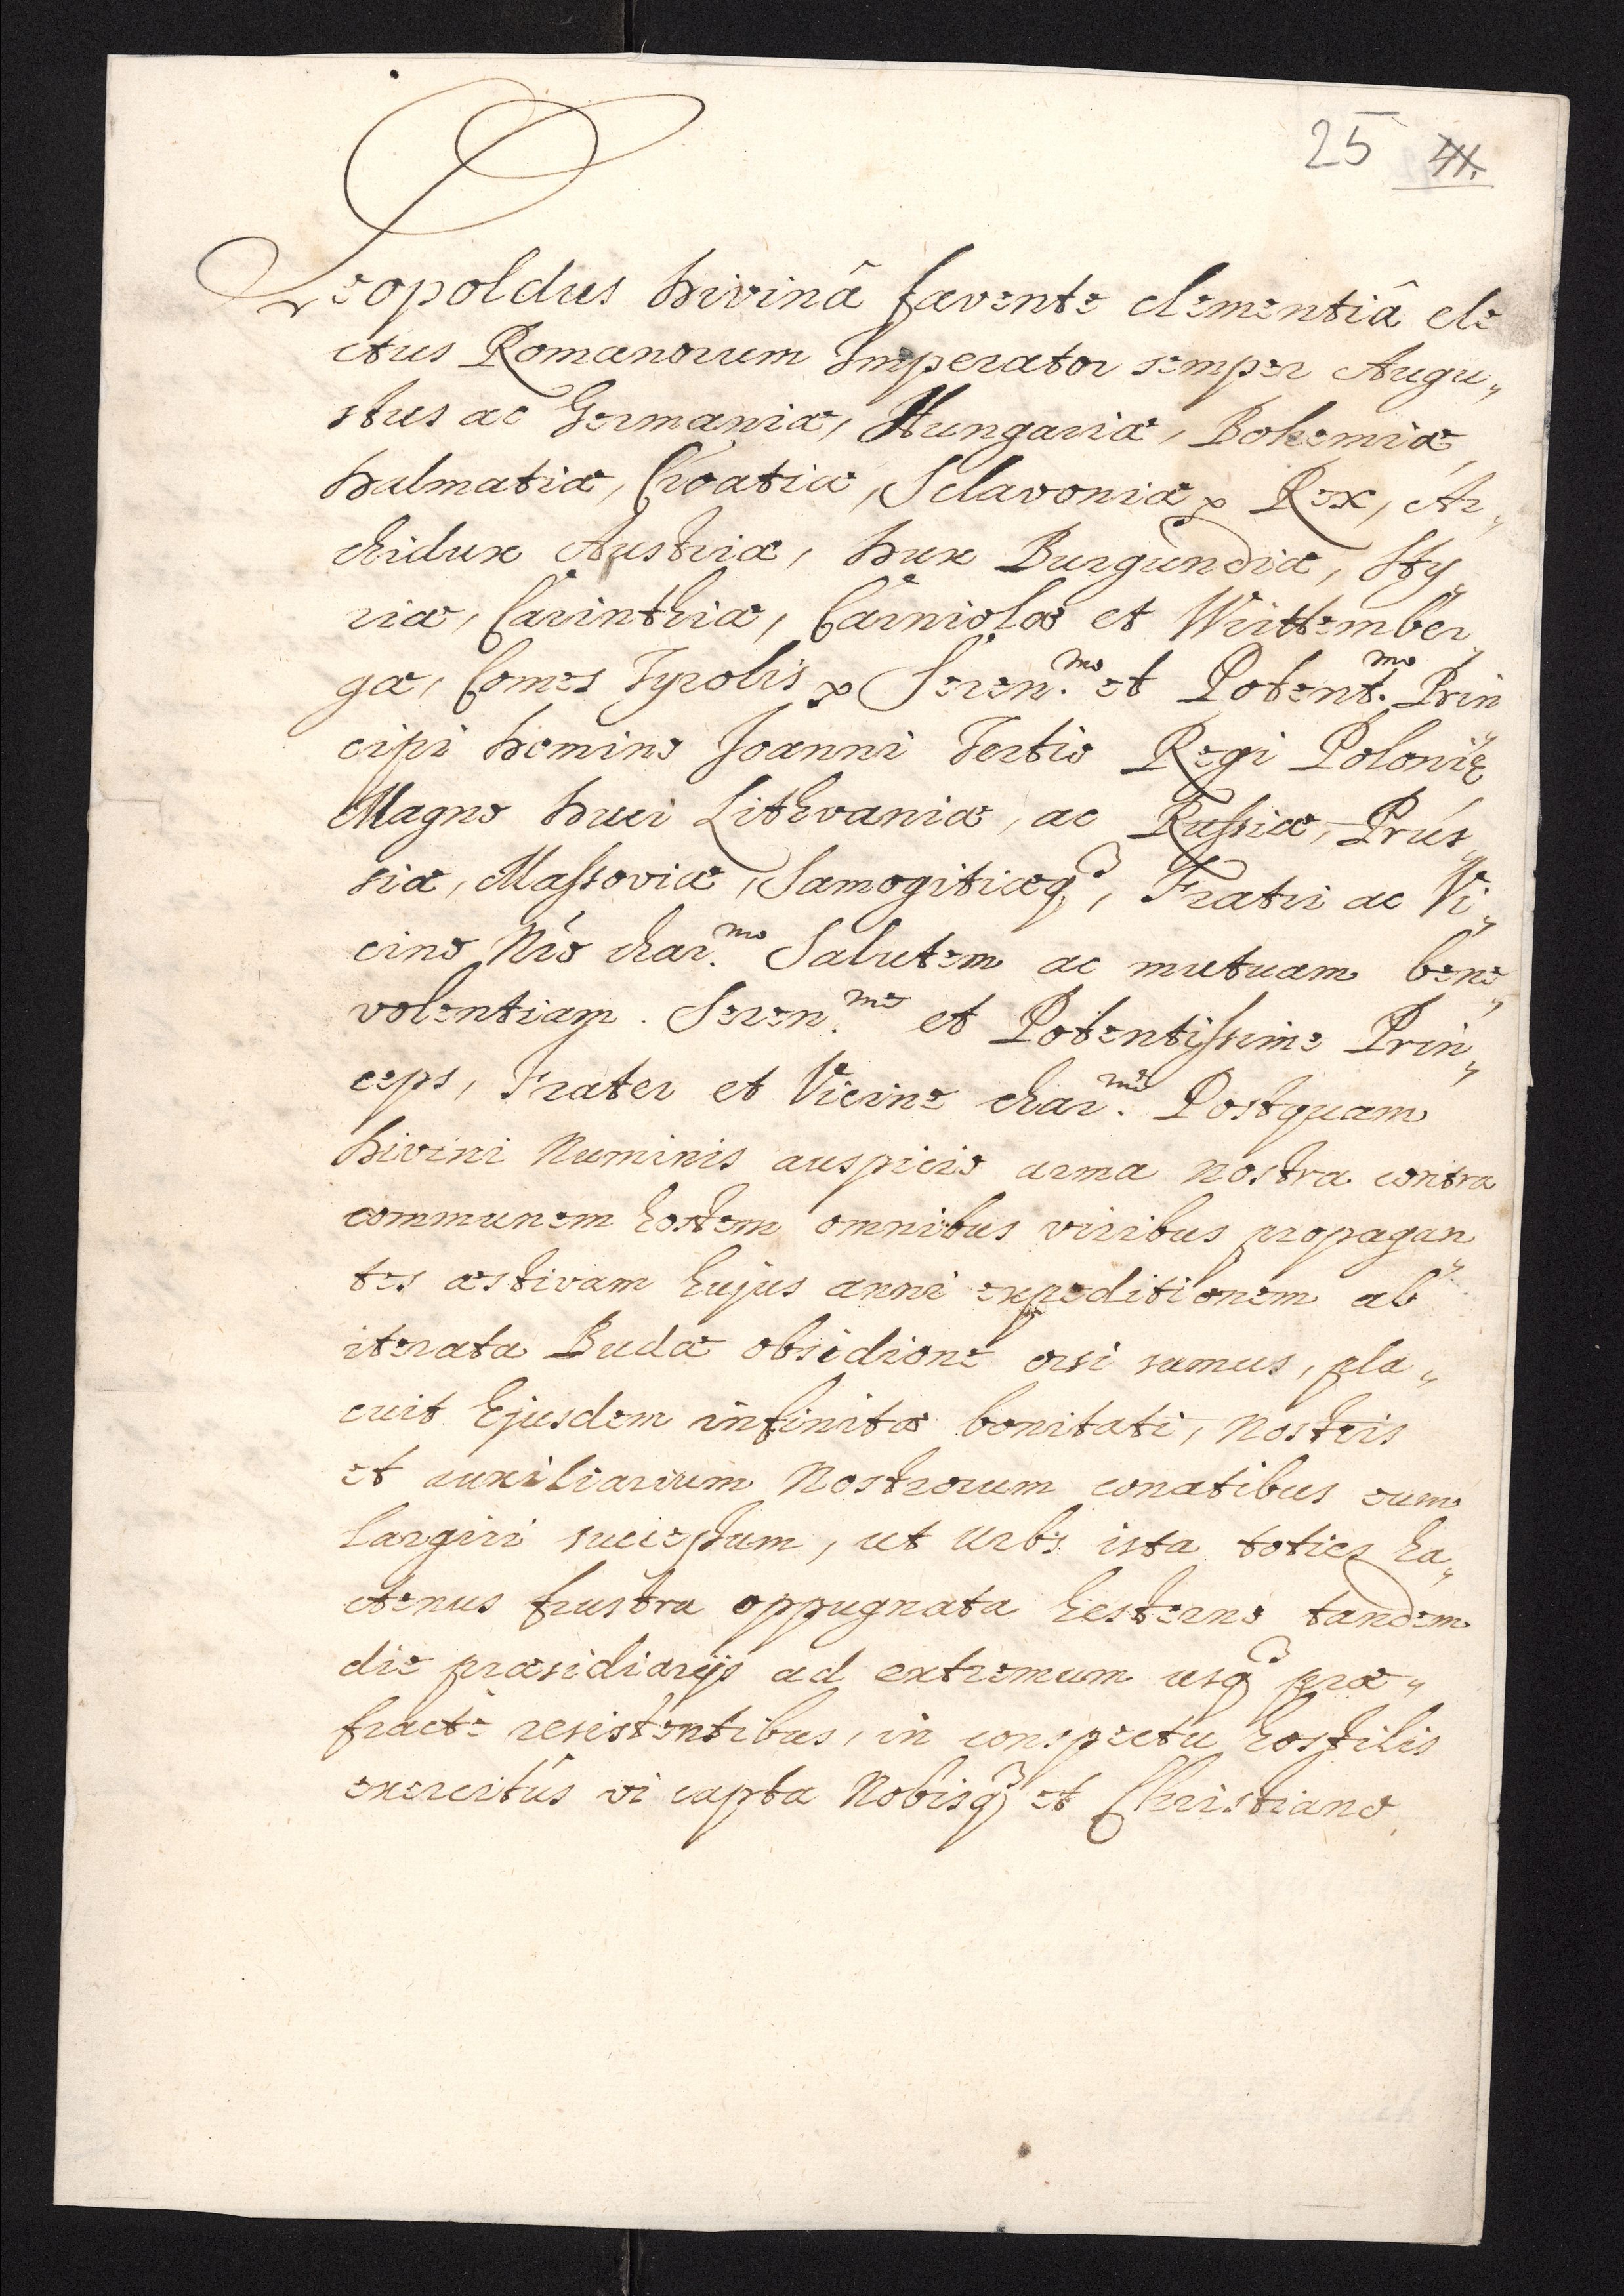 25
Leopoldus Divinâ favente clementiâ ele
ctus Romanorum Imperator semper Augu„
stus ac Germaniæ, Hungariæ, Bohemiæ,
Dalmatiæ, Croatiæ, Sclavoniæ Rex, Ar„
chidux Austriæ, Dux Burgundiæ, Sty„
riæ, Carinthiæ, Carniolæ et Wirttember„
gæ, Comes Tyrolis Seren.mo et Potent.mo Prin
cipi Domino Joanni Tertio Regi Poloniæ
Magno Duci Lithvaniæ, ac Russiæ, Prus„
siæ, Massoviæ, Samogitiæq, Fratri ac Vi„
cino Nro char.mo Salutem ac mutuam bene„
volentiam. Seren.me et Potentissime Prin„
ceps, Frater et Vicine char.me Postquam
Divini Numinis auspicio arma nostra contra
communem hostem omnibus viribus propagan„
tes æstivam hujus anni expeditionem ab
iterata Budæ obsidione orsi sumus, pla„
cuit Ejusdem infinitæ bonitati, Nostris
et auxiliarium Nostrorum conatibus eum
largiri successum, ut Urbs ista toties ha„
ctenus frustra oppugnata hesterno tandem
die præsidiarijs ad extremum usq præ„
fractè resistentibus, in conspectu hostilis
exercitûs vi capta Nobisq et Christiano